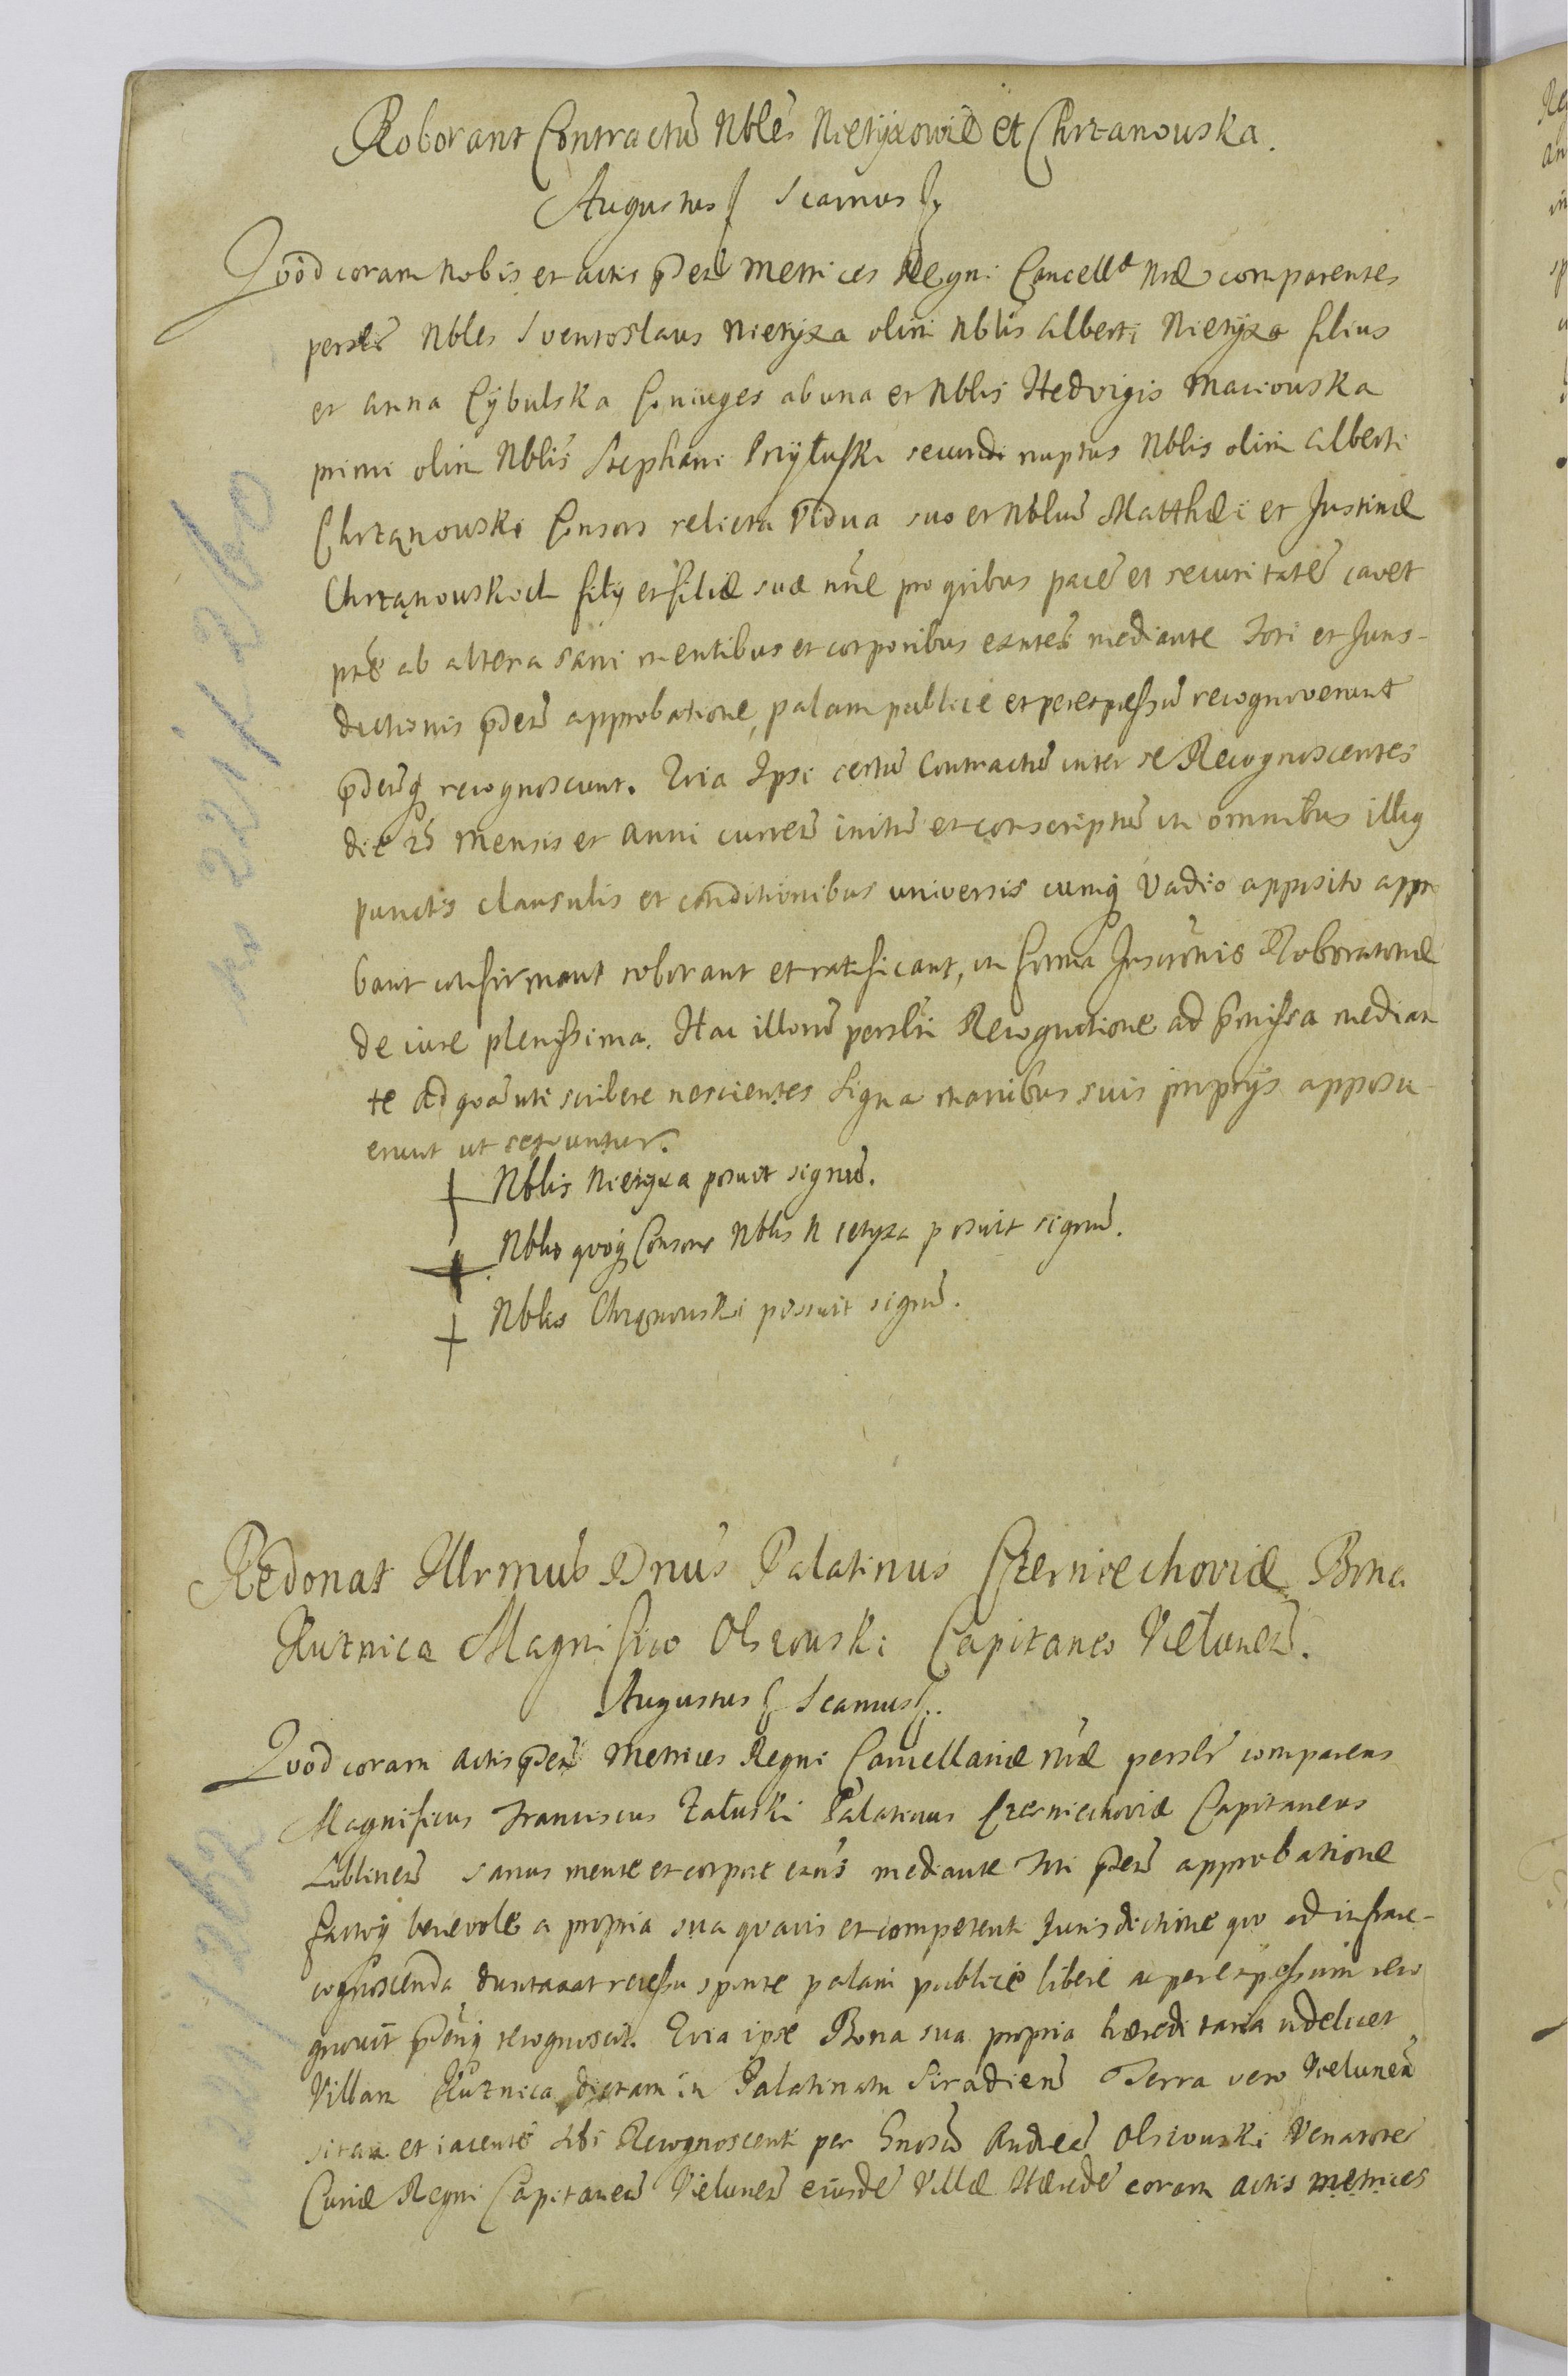 Roborant Contractū Nbles Nietyxowie et Chrzanowska.
Augustus Scamus
Quod coram nobis et actis p̄ntū Metrices Regni Cancell. nr̄æ comparentes
person̄r Nbles Sventoslaus Nietyxa olim Nblis Alberti Nietyxa filius
et Anna Cybulska Coniuges ab una et Nblis Hedvigis Maciouska
primi olim Nblis Stephani Przyłuski secundi nuptus Nblis olim Alberti
Chrząnouski Consors relicta Vidua suo et Nbliū Matthæi et Justinæ
Chrząnouskich filÿ et filiæ suæ nr̄e pro quibus pacē et securitatē cavet
ptē ab altera sani mentibus et corporibus exntes mediante Fori et Juris-
dictionis p̄ntū approbatione, palam publice et per expressū recognoverunt
p̄ntūq recognoscunt. Quia Ipsi certū Contractū inter se Recognoscentes
die 25 Mensis et Anni currēn initū et conscriptū in omnibus illiq
punctis clausulis et conditionibus universis cumq Vadio apposito appro
bant confirmant roborant et ratificant, in forma Inscr̄onis Roboratoriæ
de iure plenissima. Hac illorū person̄i Recognitione ad p̄missa median
te Ad quā uti scribere nescientes Signa manibus suis proprÿs apposu-
erunt ut sequuntur.
Nblis Nietyxa posuit signū.
Nblis quoq Consors Nblis Nietyxa posuit signū.
Nblis Chrząnouski possuit signū.
Redonat Illrmus Dnus Palatinus Czerniechoviæ Bona
Kuznica Magnifico Olszouski Capitaneo Vielunen.
Augustus Scamus
Quod coram Actis p̄ntū Metrices Regni Cancellariæ nr̄æ person̄r comparens
Magnificus Franciscus Załuski Palatinus Czerniechoviæ Capitaneus
sanus mente et corpore exn̄s mediante Fori p̄ntū approbatione
factoq benevole a propria sua quavis et competenti Jurisdictione quo ad infrare-
cognoscenda duntaxat recessu sponte palam publice libere ac per expressum reco
gnovit p̄ntiq recognoscit. Quia ipse Bona sua propria hæreditaria videlicet
Villam Kuznica dictam in Palatinatu Siradien Terra vero Vielunen
sitam et iacentē sibi Recognoscenti per Gnosū Andreā Olszouski Venatorē
Curiæ Regni Capitaneū Vielunen eiusdē Villæ Hæredē coram Actis Metrices